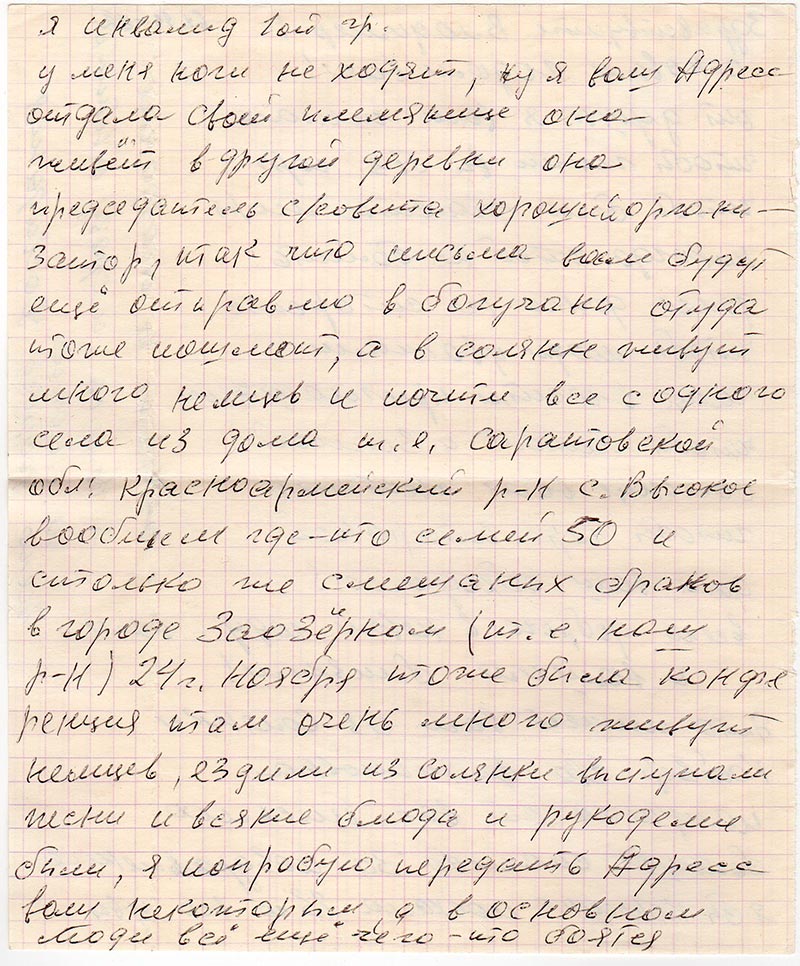 я инвалид 1ой гр.
у меня ноги не ходят, ну я ваш Адресс
отдала своей племянице она
живёт в другой деревки она
председатель с/совита хороший оргони-
затор, так что письма вам будут
ещё отправлю в богучаны отуда
тоже пошлют, а в солянке живут
много немцев и почти все с одного
села из дома т.е. Саратовской
обл! Красноармейский р-н с. Высокое
вообщем где-то семей 50 и
столько же смешаных браков
в городе Заозёрном (т.е. наш
р-н) 24г. Ноября тоже была конфе
ренция там очень много живут
немцев, ездили из Солянки выступали
песни и всякие блюда и рукоделие
были, я попробую передать Адресс
ваш некоторым, а в основном
люди всё ещё чего-то боятся